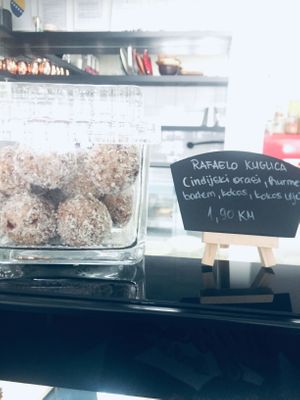 RAFAELO KUGLICA
(indijski orasi, hurme
badem, kokos, kokos ulje
1,90 KM